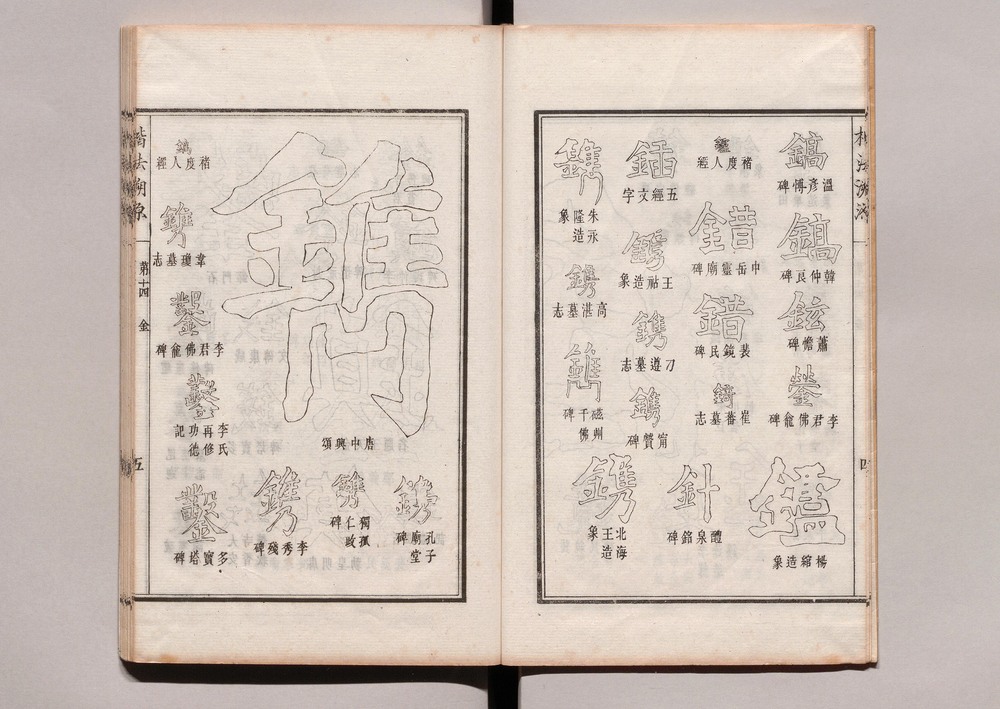 楷法溯源
鎬
溫彥博碑
鎬
韓仲良碑
鉉
蕭憺碑
鎣
李君佛龕碑
鑑
楊綰造象
鑑
褚度人經
錯
中岳靈廟碑
錯
裴鏡民碑
錡
崔蕃墓志
針
醴泉銘碑
鍤
五經文字
鐫
王祐造象
鐫
刁遵墓志
鐫
甯贙碑
鐫
北海王造象
鐫
朱永隆造象
鐫
高湛墓志
鐫
磁州千佛碑
鐫
唐中興頌
鐫
孔子廟堂碑
鐫
獨孤仁政碑
鐫
李秀殘碑
褚度人經
鐫
韋瓊墓志
鑿
李君佛龕碑
鑿
李氏再修功德記
鑿
多寶塔碑
楷法溯源
第十四 金
五